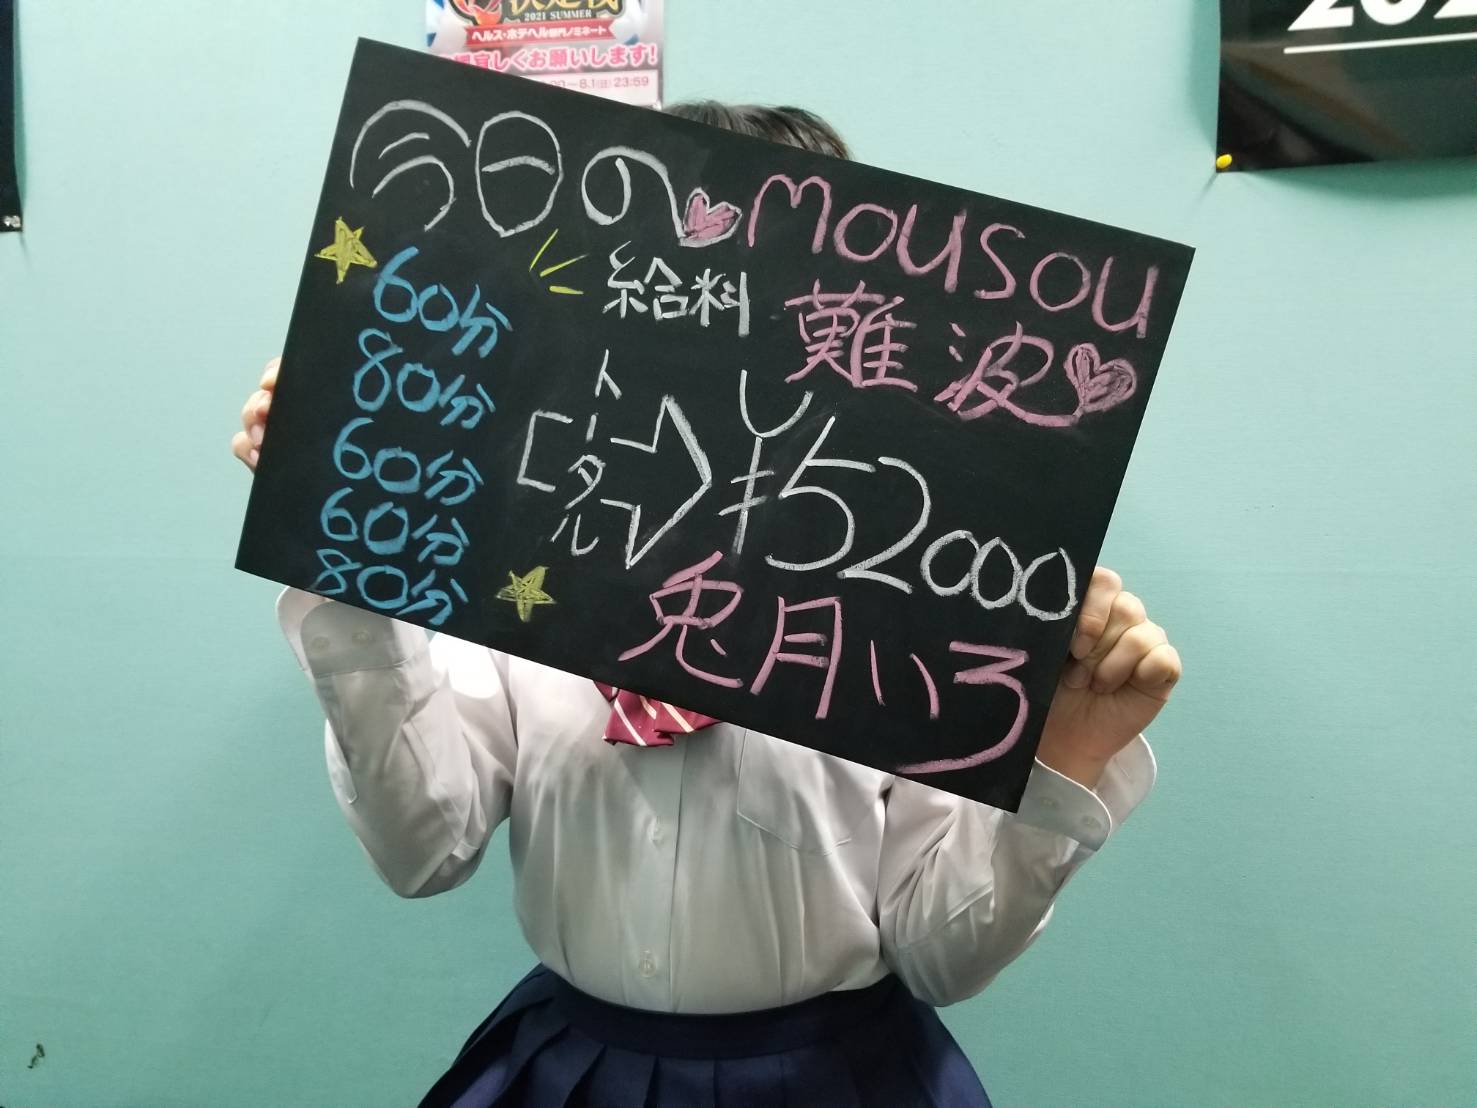 2021 SUMMER
ヘルス・ホテヘル部門ノミネート
宜しくお願いします!
8.1(日)23:59
202
今日の
mousou
難波
給料
60分
80分
60分
60分
80分
トータル
¥52000
鬼月いろ